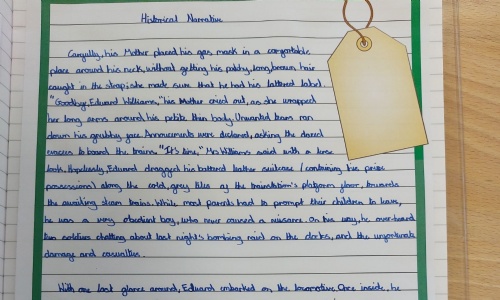 Historical Narrative
Carefully, his Mother placed his gas mask in a comfortable
place around his neck, without getting his long, brown hair
caught in the strap; she made sure that he had his tattered label.
"Goodbye, Edward Williams," his Mother cried out, as she wrapped
her long arms around his petite then body. Unwanted tears ran
down his grubby face. Annoucements were declared, asking the dazed
evacees to board the trains. "It's time," Mrs Williams said with a
look. Hopelessly, Edward dragged his battered leather suitcase (containing his prize
possessions) along the cold, grey tiles of the trainstation's platform floor, towards
the awaiting steam trains. While most parents had to prompt their children to leave,
he was a very obedient boy, who never caused a nuisance. On his way, he over-heard
two soldiers chatting about last night's bombing raid on the docks, and the unfortunate
damage and casualties.
With one last glance around, Edward embarked on the locomotive. Once inside, he